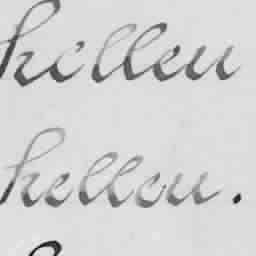 hellen
hellen.